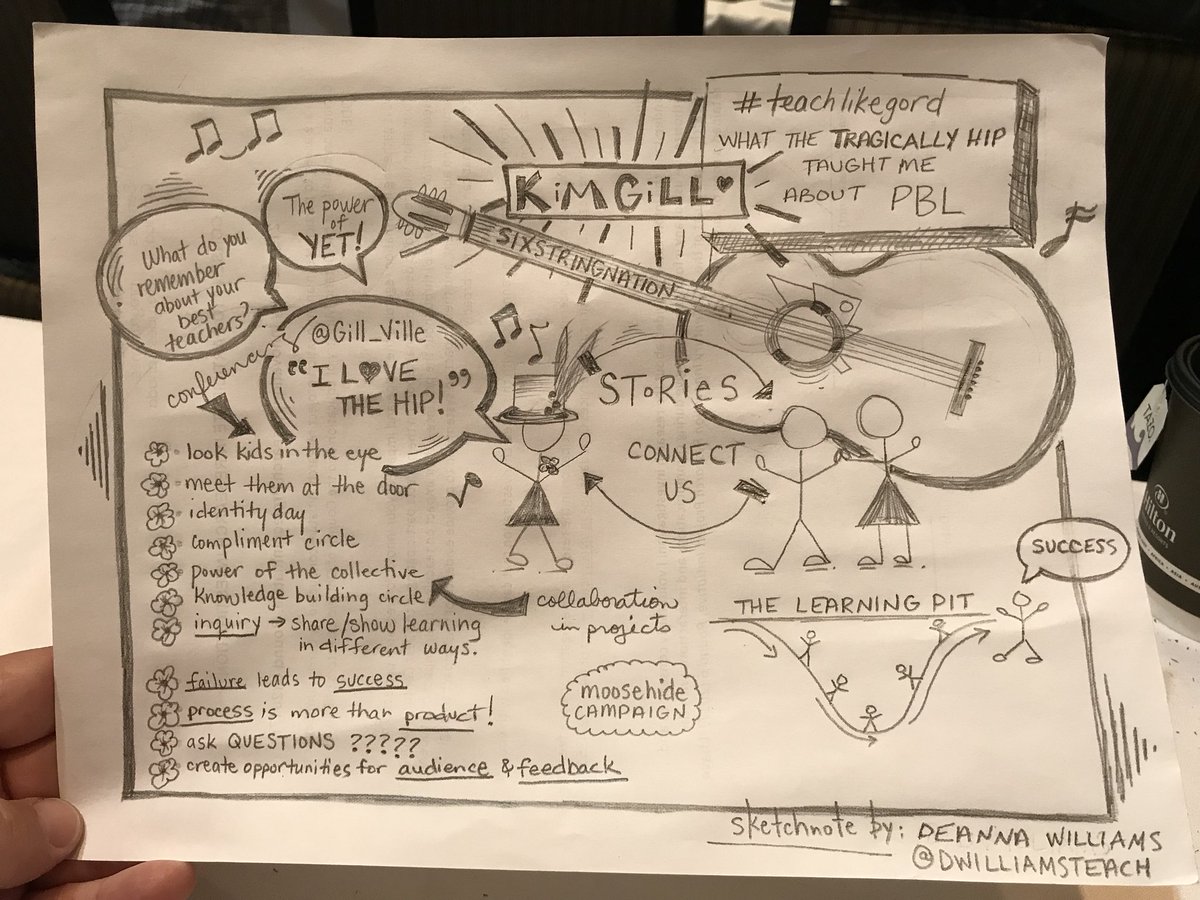 #teachlikegord
WHAT THE TRAGICALLY HIP
TAUGHT ME
ABOUT PBL
KiMGiLL
SIXSTRINGNATION
The power
of
YET!
What do you
remember
about your
best
teachers?
@Gill_Ville
"I L♥VE
THE HIP!"
conference
STORiES
CONNECT
US
look kids in the eye
meet them at the door
identity day
compliment circle
power of the collective
Knowledge building circle
inquiry → share/show learning
in different ways.
collaboration
in projects
failure leads to success
process is more than product!
ask QUESTIONS ?????
create opportunities for audience & feedback
moosehide
CAMPAIGN
THE LEARNING PIT
SUCCESS
sketchnote by: DEANNA WILLIAMS
@DWILLIAMSTEACH
TAZO